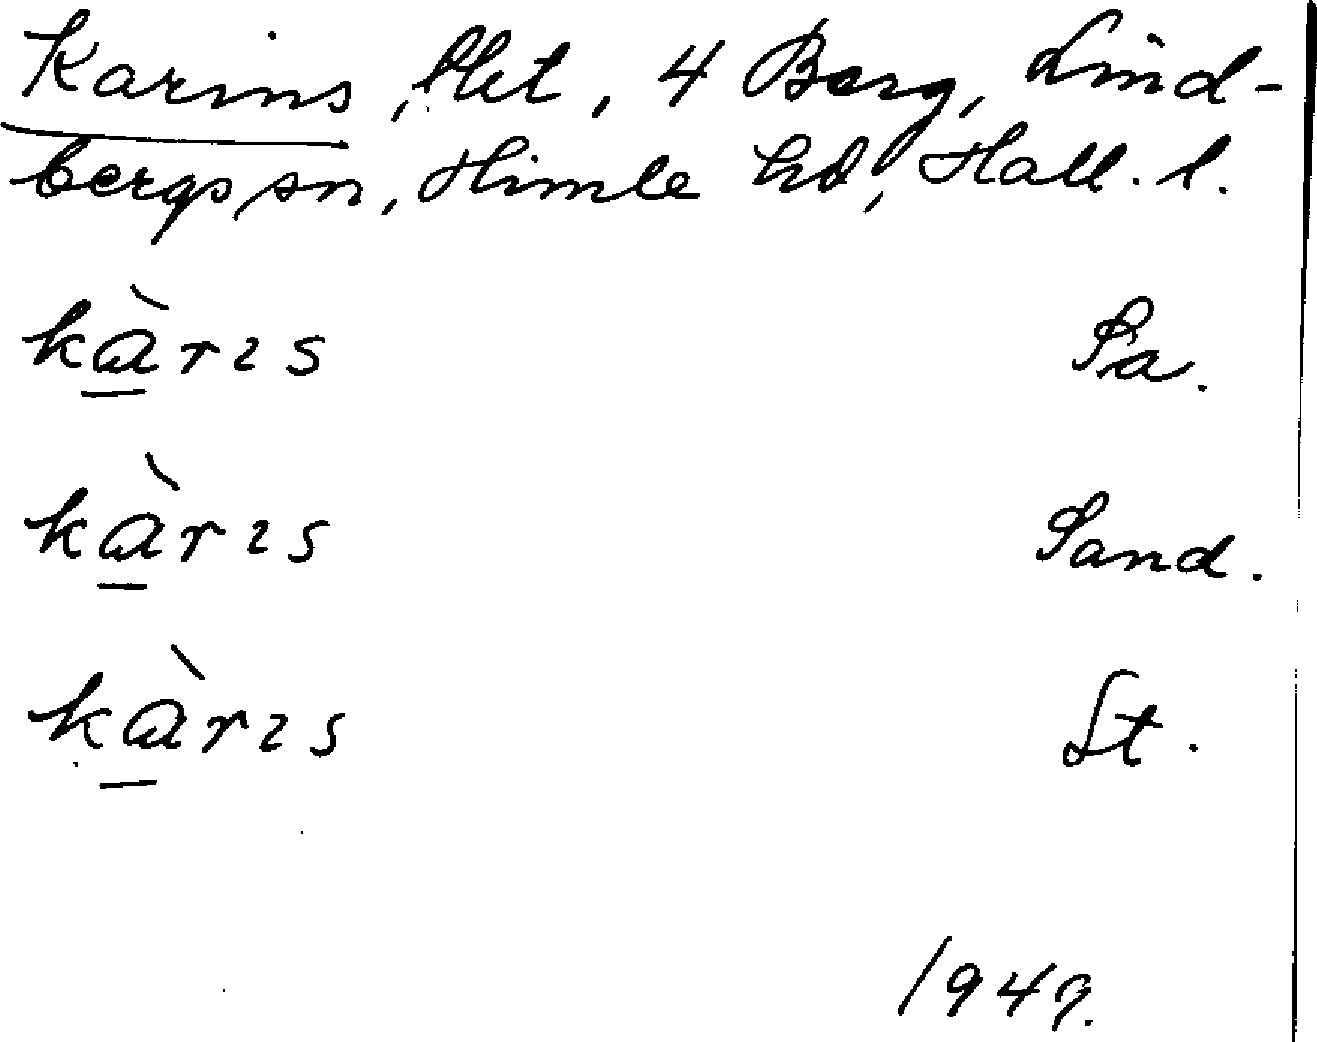 Karins, lht, 4 Berg, Lind-
bergs sn, Himle hd, Hall. l.
kɑ̀rɩs Pa.
kɑ̀rɩs Sand.
kɑ̀rɩs St.
1947.